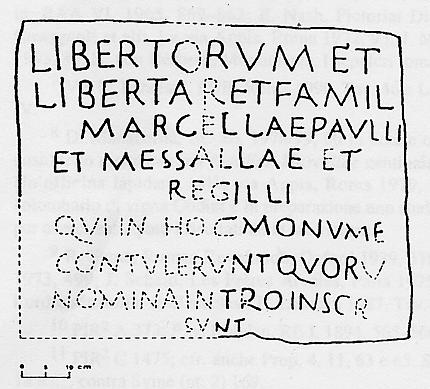 LIBERTORVM ET
LIBERTARETFAMIL
MARCELLAEPAVLLI
ET MESSALLAE ET
REGILLI
QVI IN HOC MONVME
CONTVLERVNT QVORV
NOMINA INTRO INSCR
SVNT
0 5 10 cm